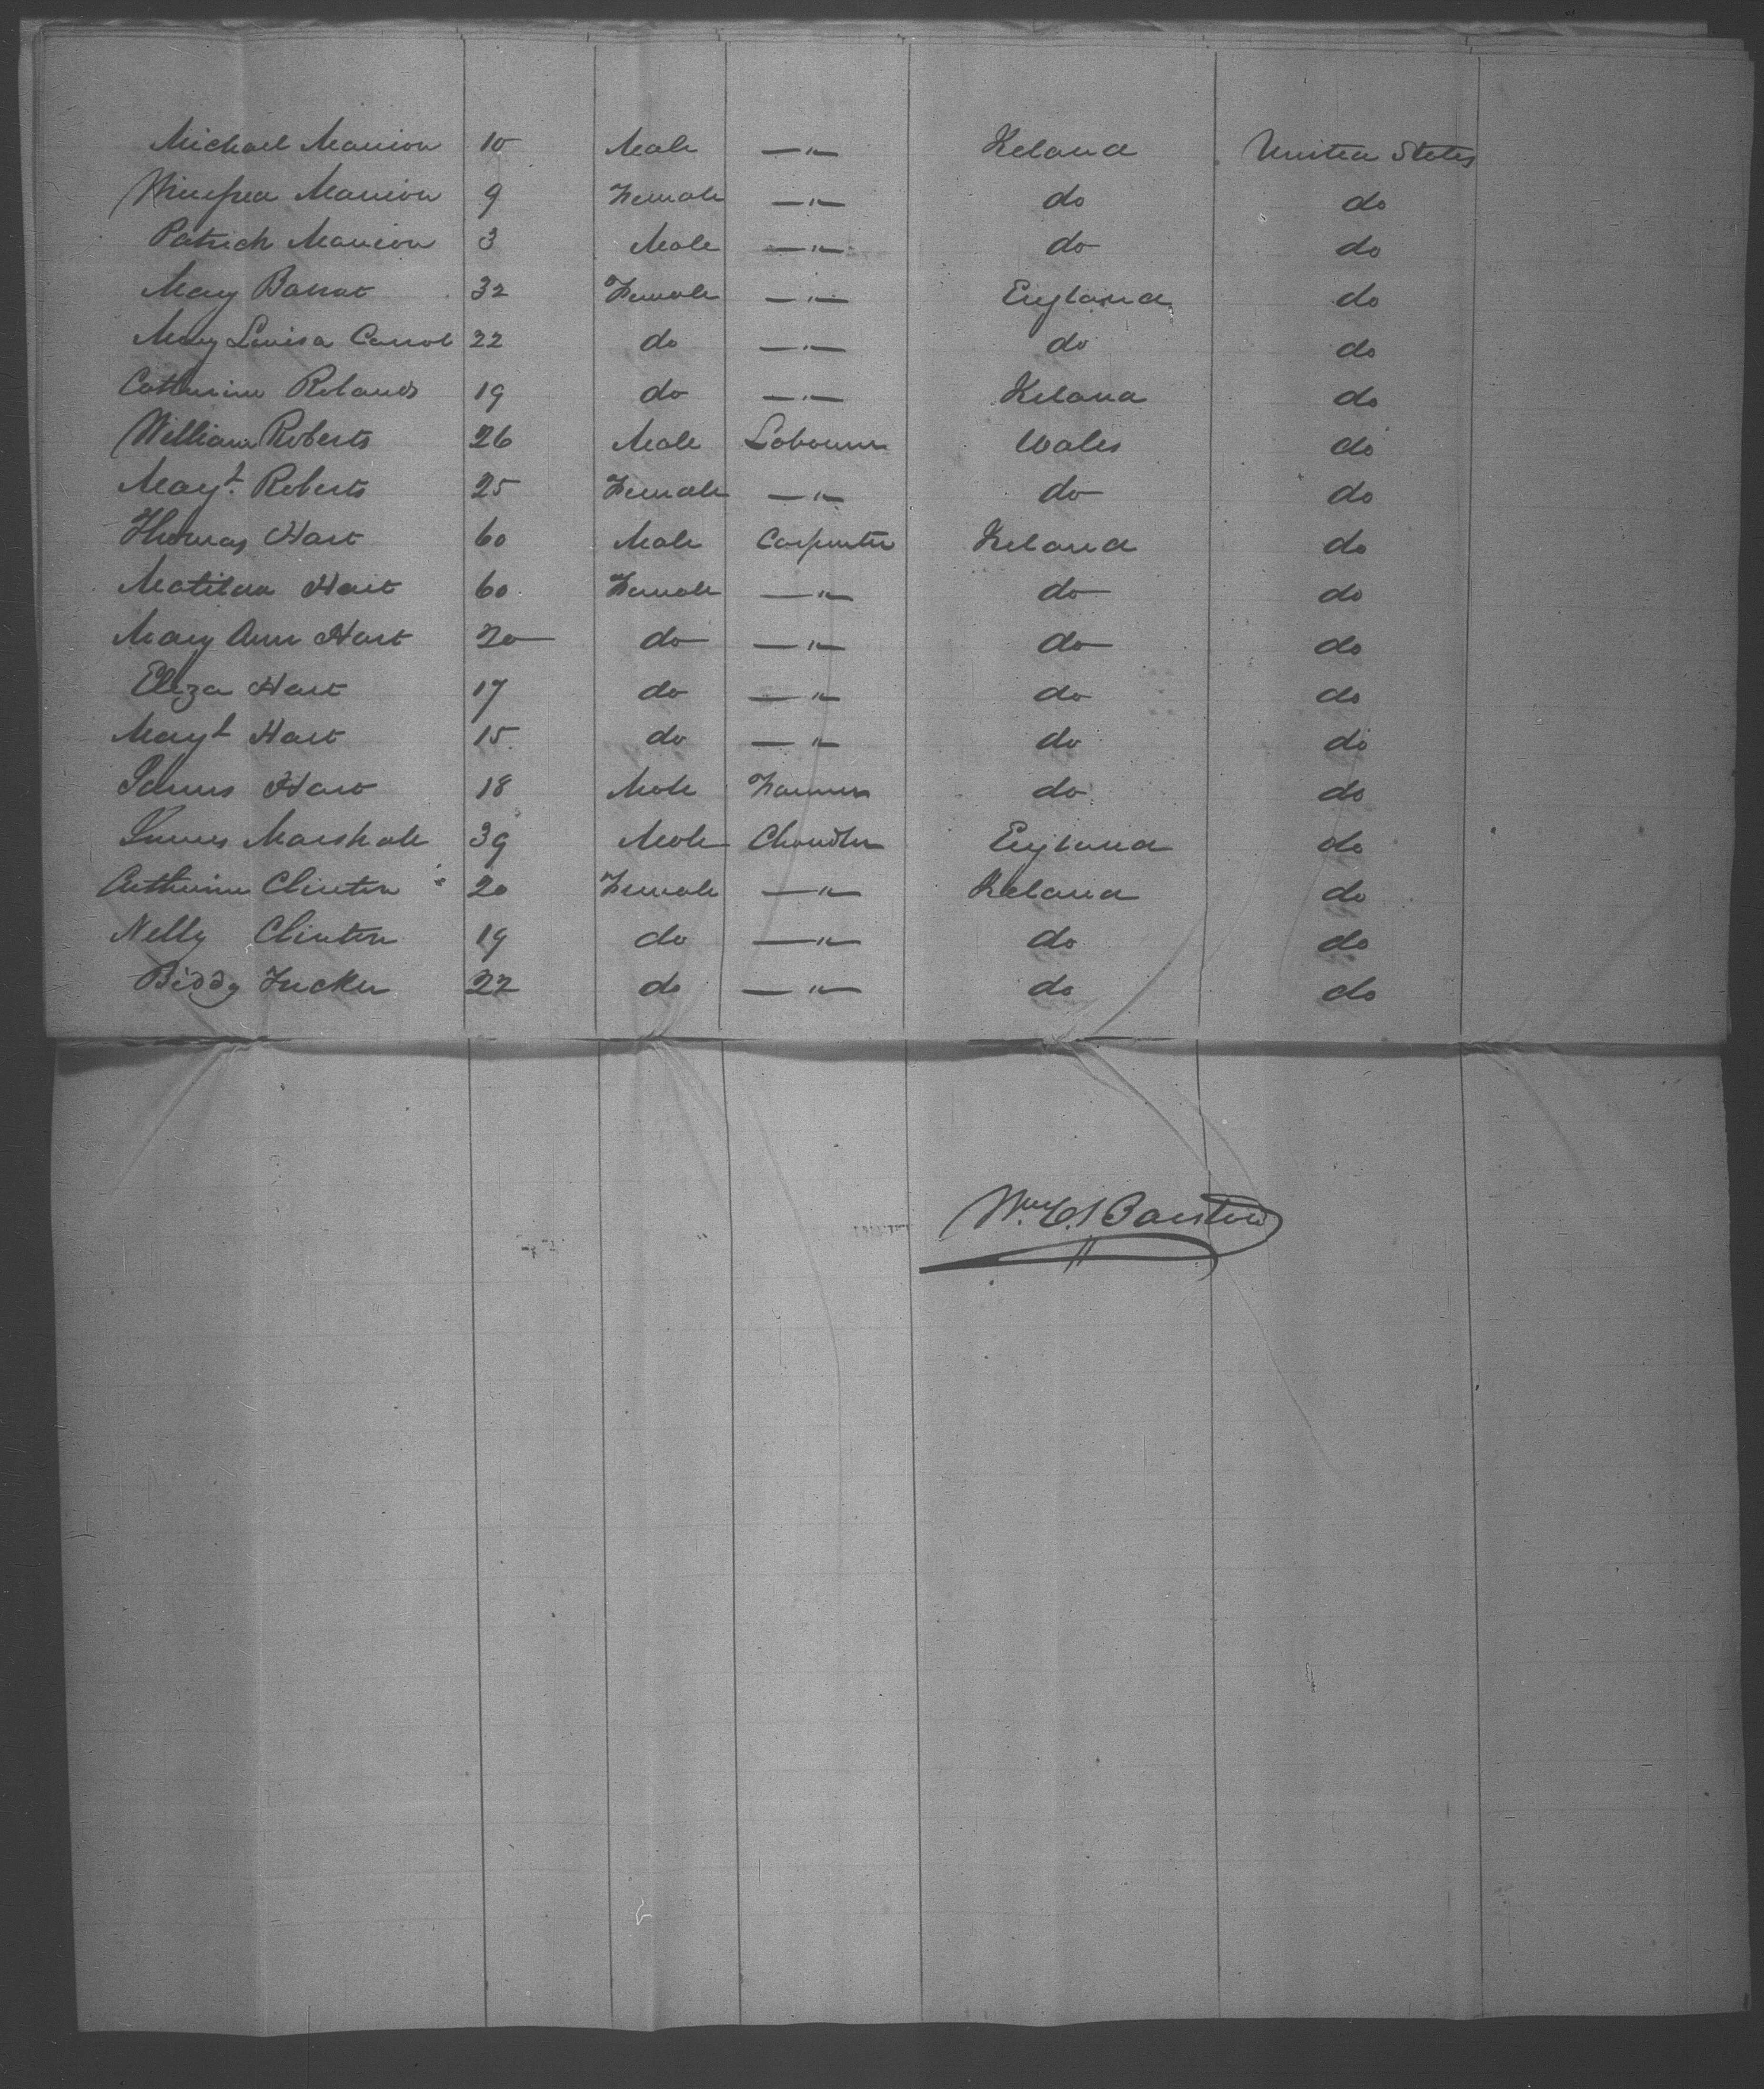 Michael Manion 10 Male —"— Ireland United States
Winefred Manion 9 Female —"— do do
Patrick Manion 3 Male —"— do do
Mary Barrat 32 Female —"— England do
Mary Louisa Carrol 22 do —"— do do
Catherine Rolands 19 do —"— Ireland do
William Roberts 26 Male Labourer Wales do
Margt. Roberts 25 Female —"— do do
Thomas Hart 60 Male Carpenter Ireland do
Matilda Hart 60 Female —"— do do
Mary Ann Hart 20 do —"— do do
Eliza Hart 17 do —"— do do
Margt Hart 15 do —"— do do
James Hart 18 Male Farmer do do
James Marshall 39 Male Chandler England do
Catherine Clinton 20 Female —"— Ireland do
Nelly Clinton 19 do —"— do do
Biddy Tucker 22 do —"— do do
Wm. C. Barstow